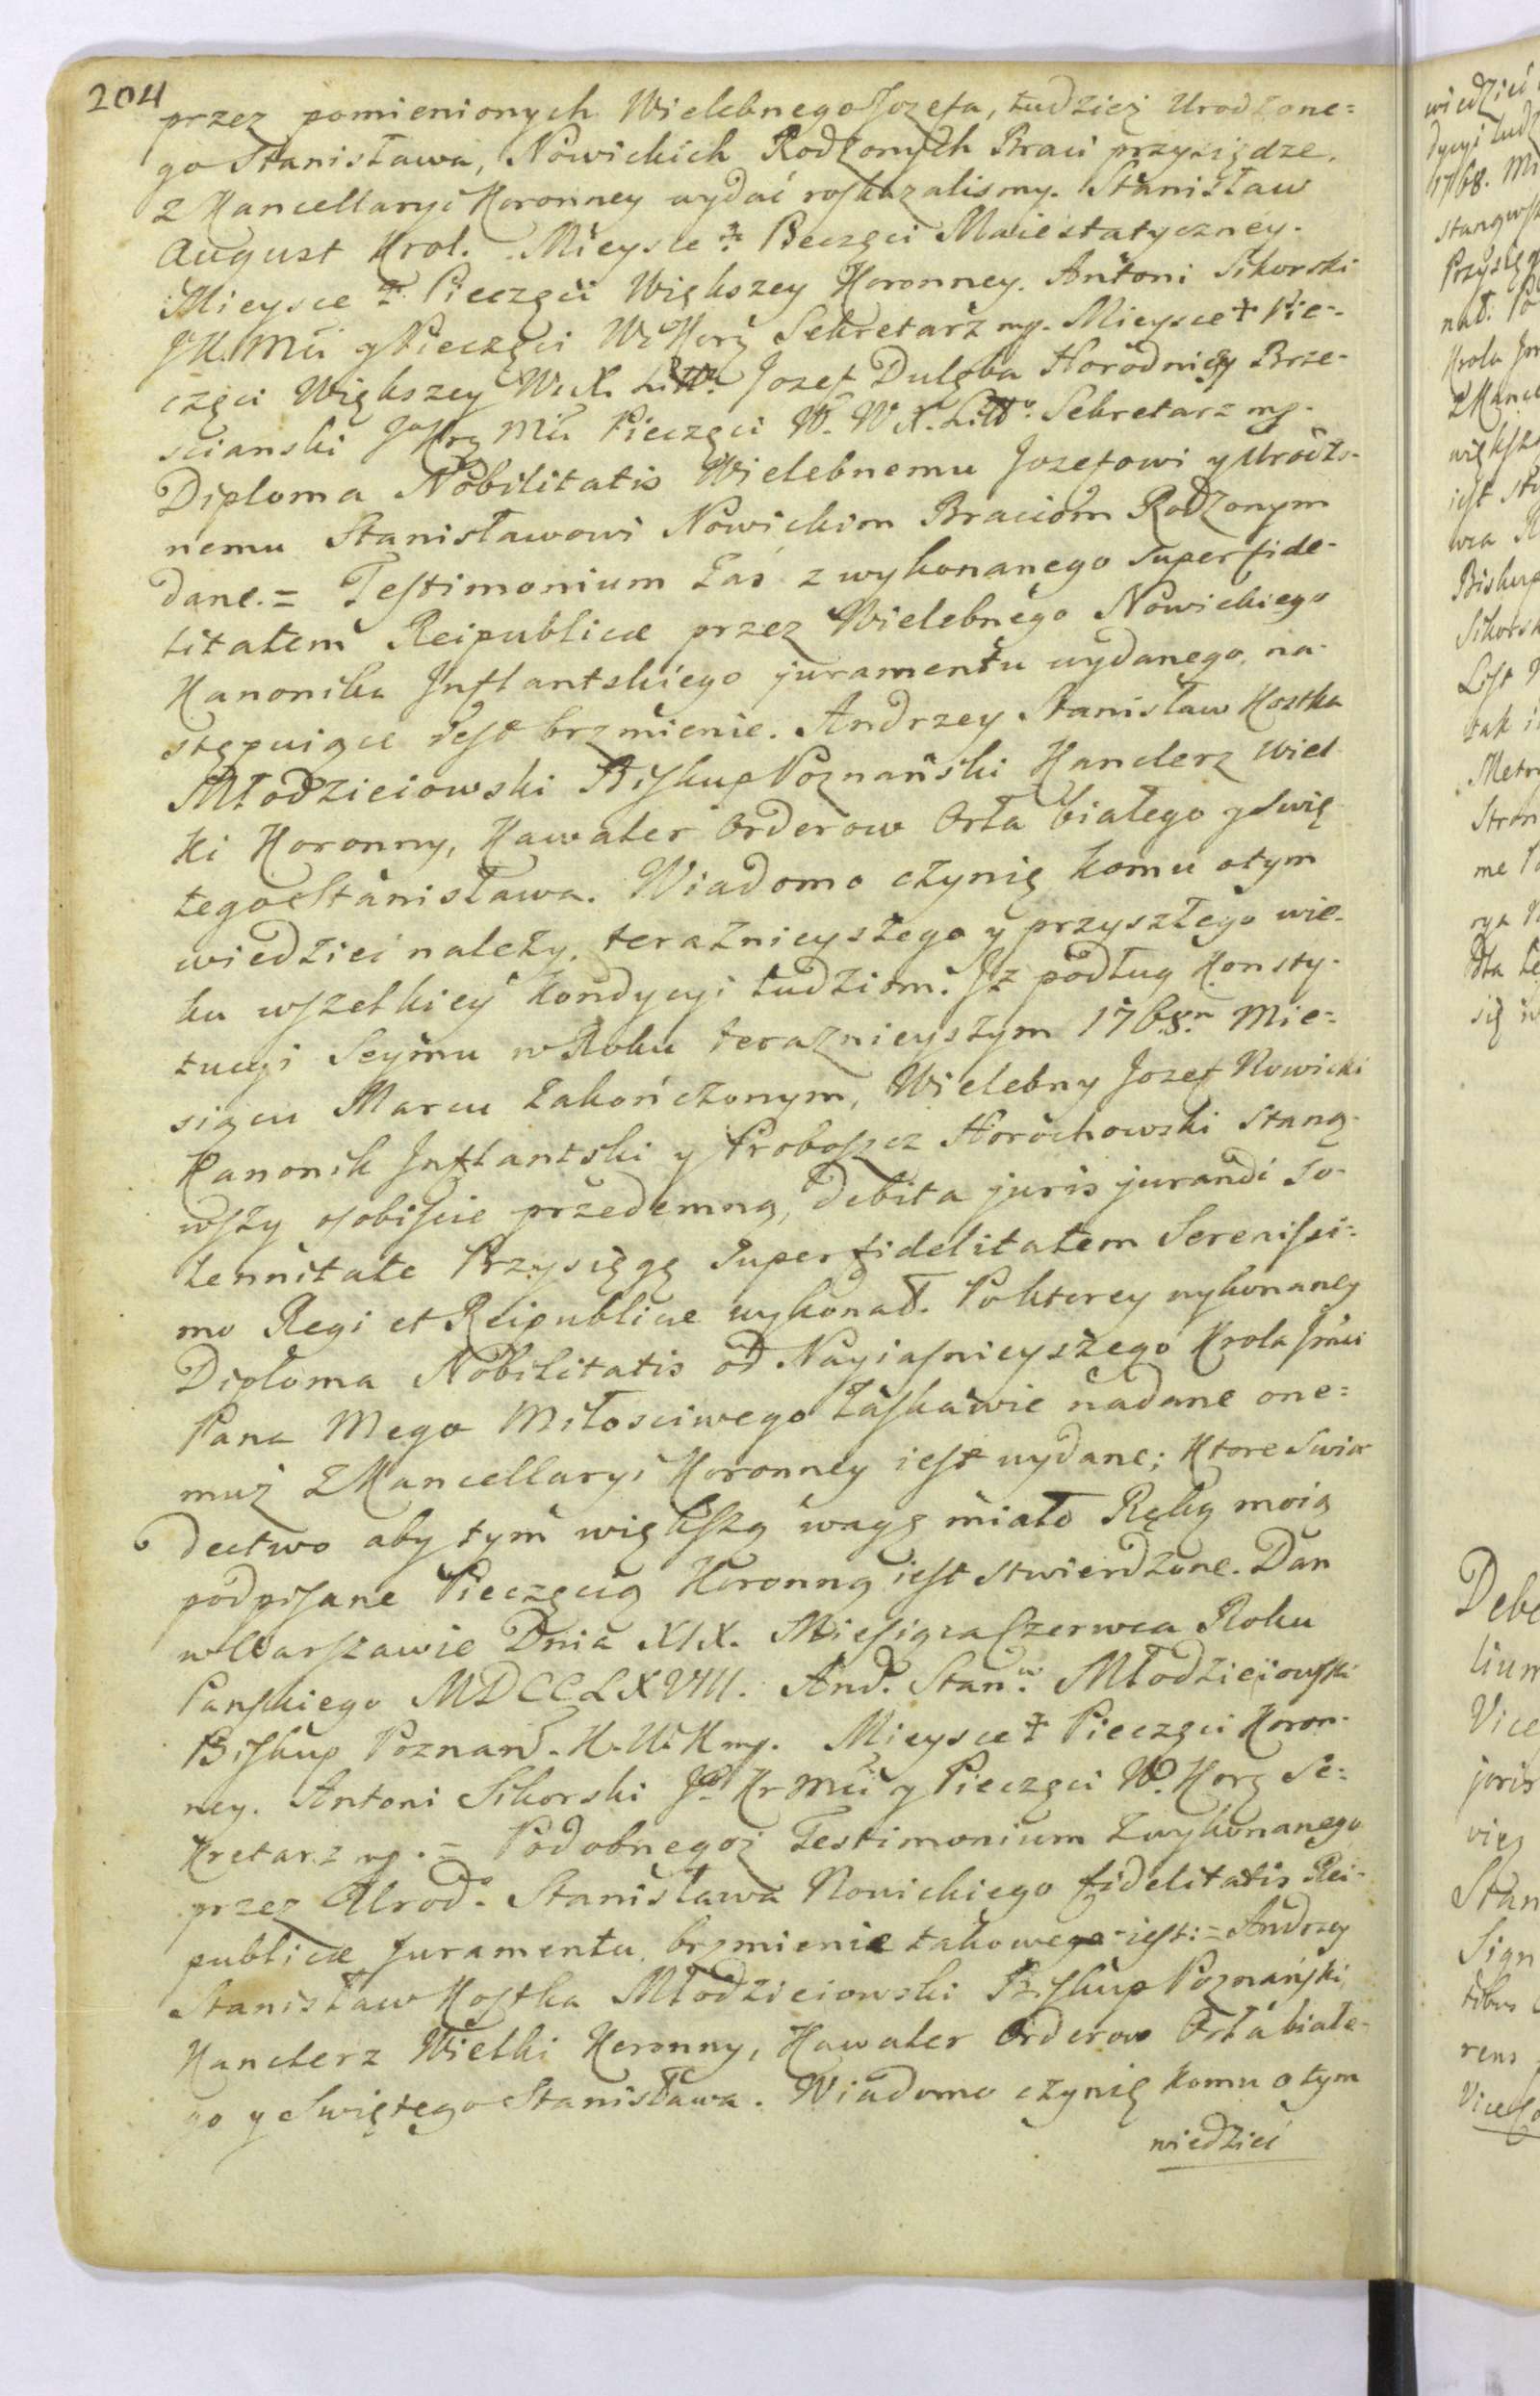 204
przez pomienionych Wielebnego Jozefa, tudziez Urodzone=
go Stanisława, Nowickich Rodzonych Braci przysiędze.
z Kancellaryi Koronney wydać roskazalismy. Stanisław
August Krol. Mieysce ‡ Pieczęci Maiestatyczney.
Mieysce ‡ Pieczęci Większey Koronney. Antoni Sikorski
JK. Mci y Pieczęci W. Kory Sekretarz mp. Mieysce ‡ Pie-
częci Większey W. X. Litt. Jozef Dulęba Horodniczy Brze-
scianski Krz Mci Pieczęci W. W X. Litto. Sekretarz mp.
Diploma Nobilitatis Wielebnemu Jozefowi y Urodzo-
nemu Stanisławowi Nowickim Braciom Rodzonym
dane. = Testimonium zas z wykonanego super fide-
litatem Reipublicæ przez Wielebnego Nowickiego
Kanonika Inflantskiego juramentu wydanego, na-
stępuiące iest brzmienie. Andrzey Stanisław Kostka
Młodzieiowski Biskup Poznański Kanclerz Wiel
ki Koronny, Kawaler Orderow Orła białego y Swię
tego Stanisława. Wiadomo czynię komu o tym
wiedzieć należy, teraznieyszego y przyszłego wie-
ku wszelkiey kondycyi ludziom. Iż podług Konsty-
tucyi Seymu w Roku teraznieyszym 1768m Mie=
siącu Marcu zakończonym, Wielebny Jozef Nowicki
Kanonik Inflantski y Proboszcz Horochowski staną-
wszy osobiscie przedemną, debita juris jurandi so-
lennitate Przysięgę super fidelitatem Serenissi=
mo Regi et Reipublicæ wykonał. Po ktorey wykonaney
Diploma Nobilitatis od Nayiasnieyszego Krola Jmci
Pana Mego Miłosciwego łaskawie nadane one=
muż z Kancellaryi Koronney iest wydane; Ktore Swia
dectwo aby tym większą wagę miało Ręką moią
podpisane Pieczęcią Koronną iest stwierdzone. Dan
w Warszawie Dnia XIX. Miesiąca Czerwca Roku
Panskiego MDCCLXVIII. And. Stan. Młodzieiowski
Biskup Poznań. K. W. K mp. Mieysce ‡ Pieczęci Koron-
ney. Antoni Sikorski Kr Mci y Pieczęci W. Kory Se=
kretarz mp. = Podobnegoż Testimonium z wykonanego
przez Urod. Stanisława Nowickiego fidelitatis Rei-
publicæ Juramentu, brzmienie takowe iest: = Andrzey
Stanisław Kostka Młodzieiowski Biskup Poznański
Kanclerz Wielki Koronny, Kawaler Orderow Orła białe-
go y Swiętego Stanisława. Wiadomo czynię komu o tym
wiedzieć